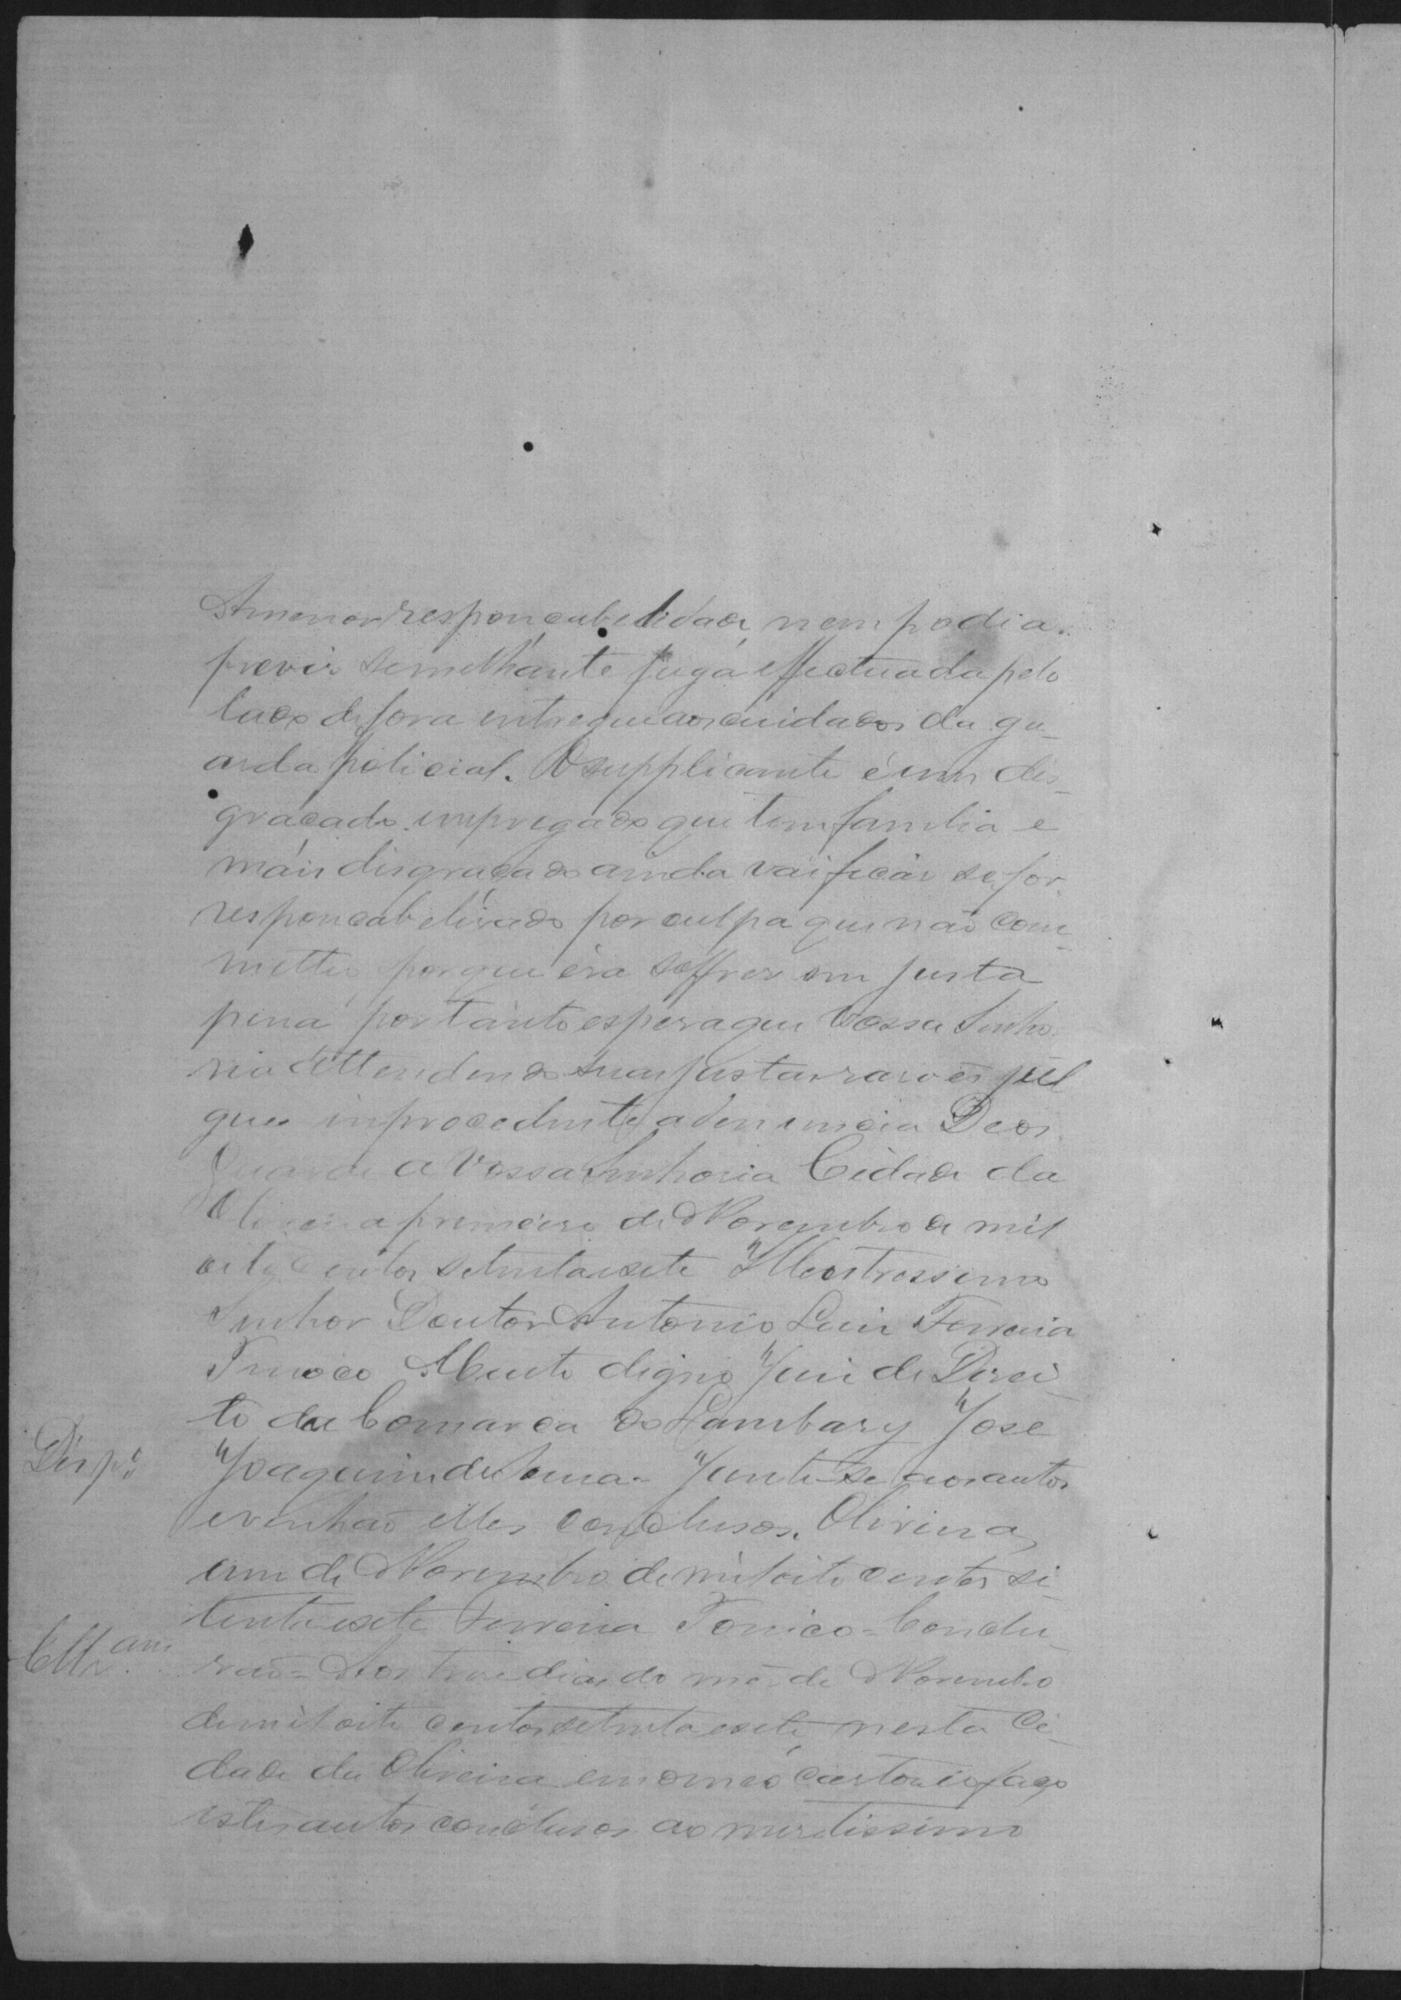 A menor responcabelidade, nem podia
previr semelhante fuga effectuada pelo
lado de fora entregue aos cuidados da gu-
arda policial. O supplicante é um des-
graçado empregado que tem familia e
máis disgraçado ainda vai ficár se for
responcabelizado por culpa que não com-
metteo porque éra soffrer em justa
pena portanto espera que Vossa Senho-
ria attendendo suas justas razoes jul
gue improcedente a denuncia Deos
Guarde a Vossa Senhoria Cidade da
Oliveira primeiro de Novembro de mil
oito centos setenta e sete Illustrissimo
Senhor Doutor Antonio Luis Ferreira
Tinoco Muito digno Juis de Direi-
to da Comarca do Lambary José
Desp.º
Joaquim de Sena = Junte-se aos autos
e venhão elles conclusos. Oliveira
um de Novembro de mil oito centos se
tenta e sete Ferreira Tonico = Conclu-
Cllz.am
zão = Aos dias do mes de Novembro
de mil oito centos setenta e sete, nesta Ci-
dade da Oliveira em o meo Cartorio faço
estes autos conclusos ao meretissimo